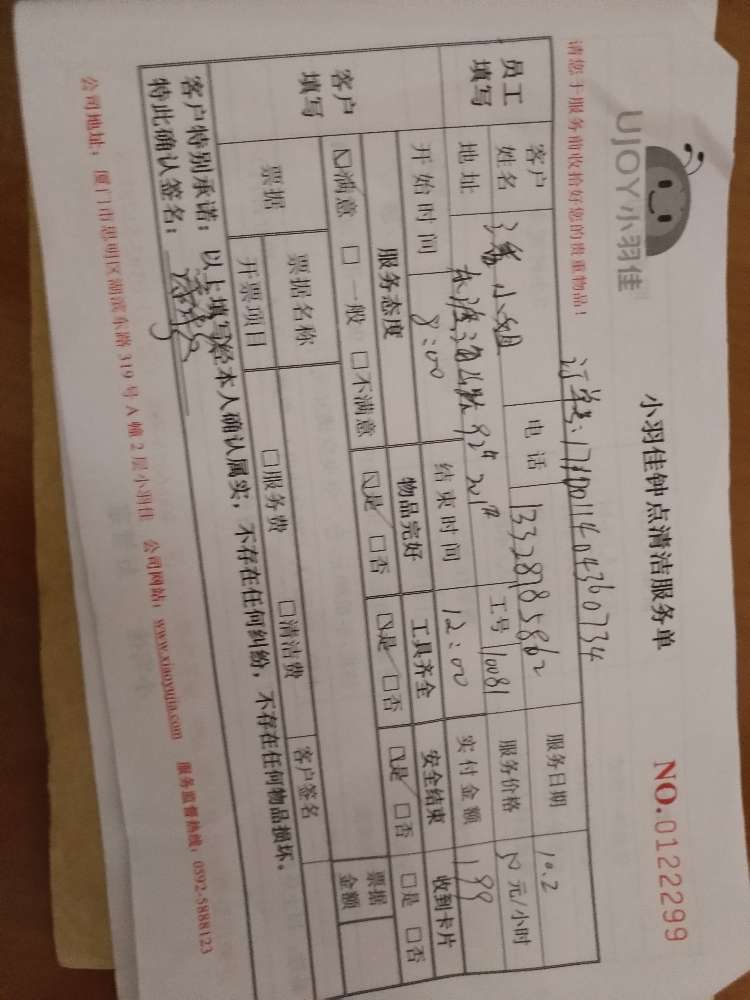 UJOY小羽佳
小羽佳钟点清洁服务单
NO.0122299
请您于服务前收拾好您的贵重物品!
订单号:
员工填写
客户姓名
小姐
电话
13328785862
服务日期
10.2
地址
工号
10081
服务价格
元/小时
开始时间
8:00
结束时间
12:00
实付金额
199
客户填写
服务态度
物品完好
工具齐全
安全结束
收到卡片
☑满意 □一般 □不满意
☑是 □否
☑是 □否
☑是 □否
□是 □否
票据
票据名称
票据金额
开票项目
□服务费 □清洁费
客户签名
客户特别承诺:以上填写经本人确认属实,不存在任何纠纷,不存在任何物品损坏。
特此确认签名:
公司地址:厦门市思明区湖滨东路319号A幢2层小羽佳 公司网站:www.xiaoyujia.com 服务监督热线:0592-5888123